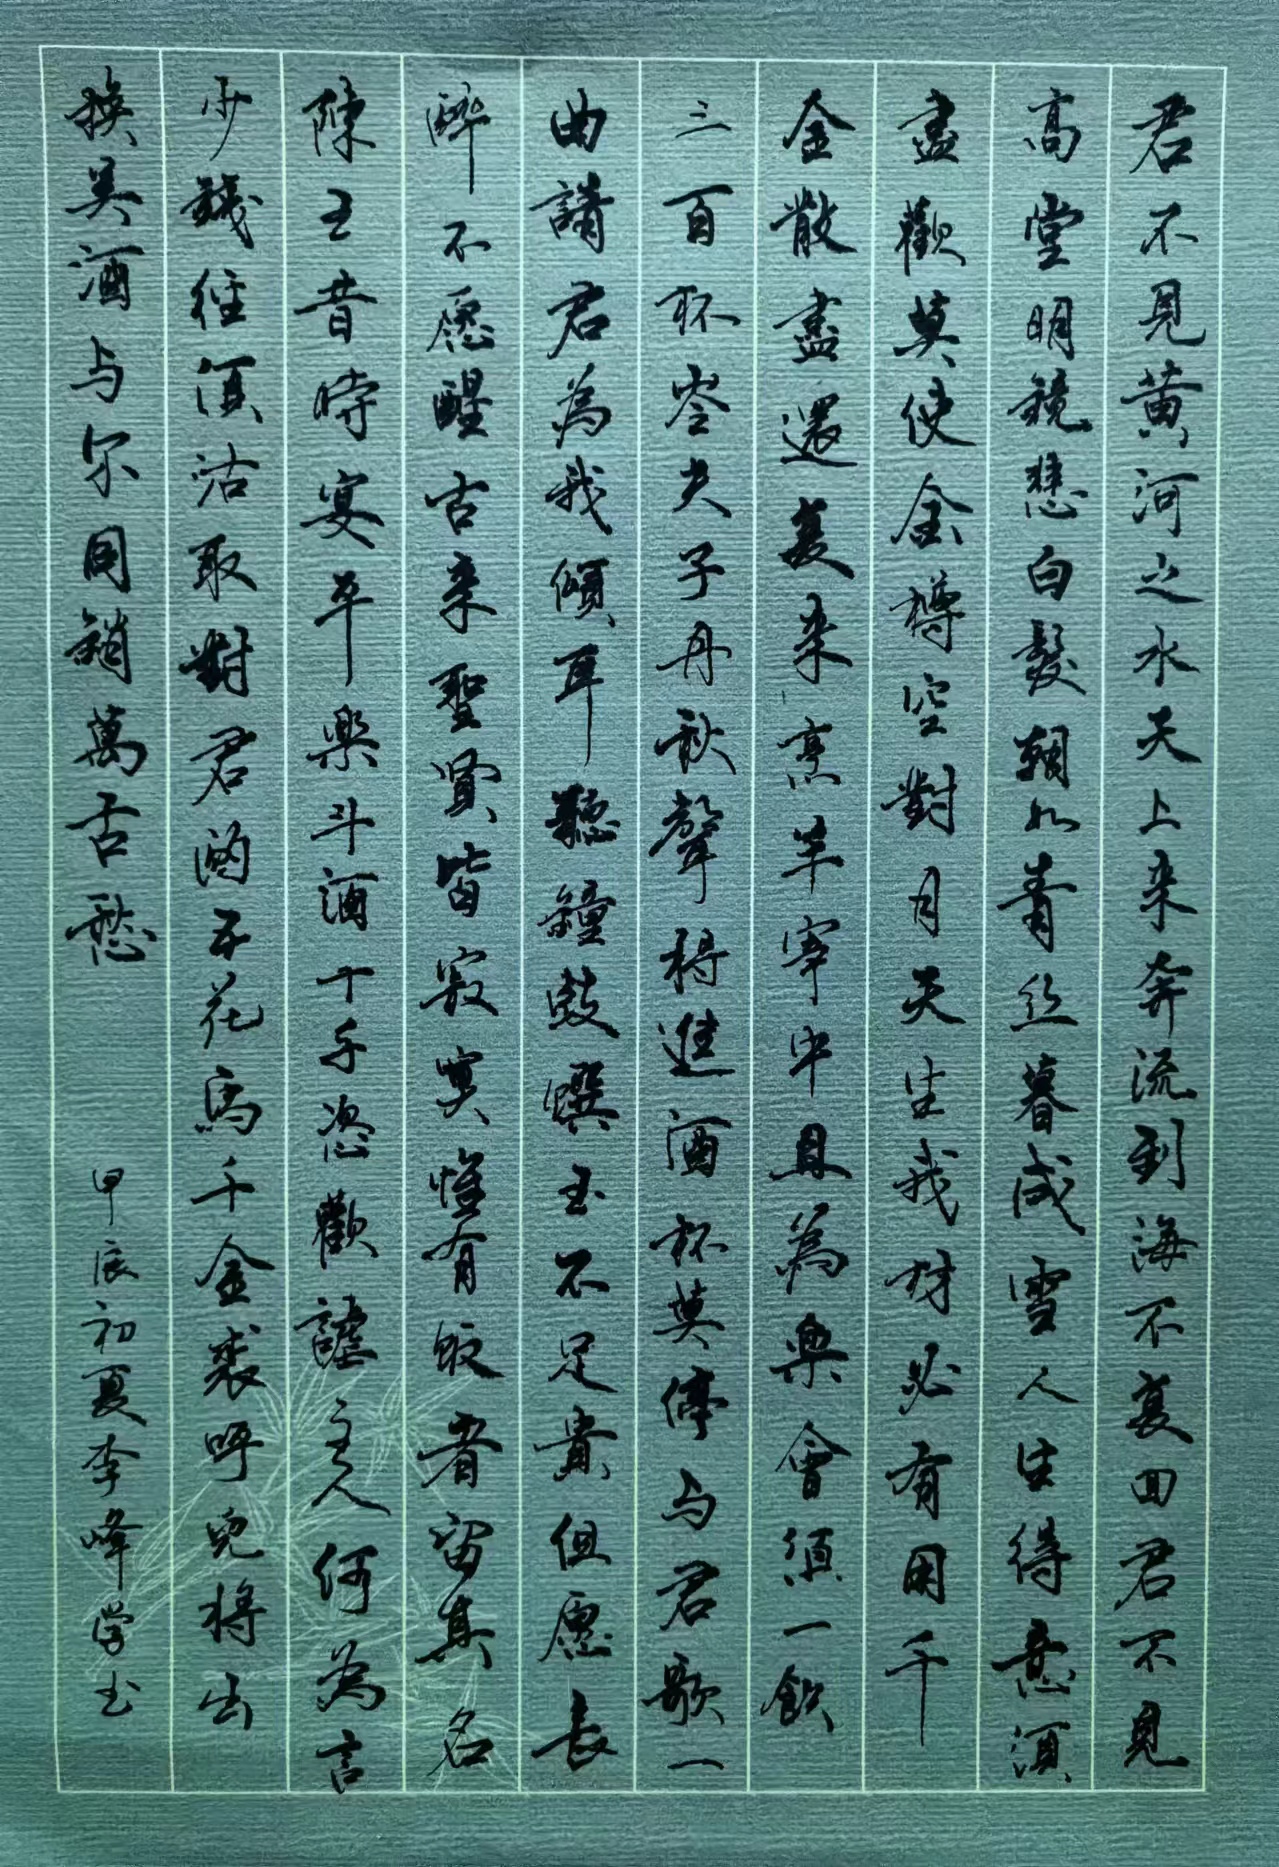 君不見黄河之水天上来奔流到海不复回君不見
高堂明鏡悲白髮朝如青丝暮成雪人生得意須
盡歡莫使金樽空對月天生我材必有用千
金散盡還复来烹羊宰牛且為樂會須一飲
三百杯岑夫子丹秋聲将進酒杯莫停与君歌一
曲請君為我傾耳聽鐘鼓馔玉不足貴但愿長
醉不愿醒古来聖賢皆寂寞惟有飲者留其名
陳王昔時宴平樂斗酒十千恣歡謔主人何為言
少錢径須沽取對君酌五花馬千金裘呼兒将出
换美酒与尔同銷萬古愁
甲辰初夏李峰学书